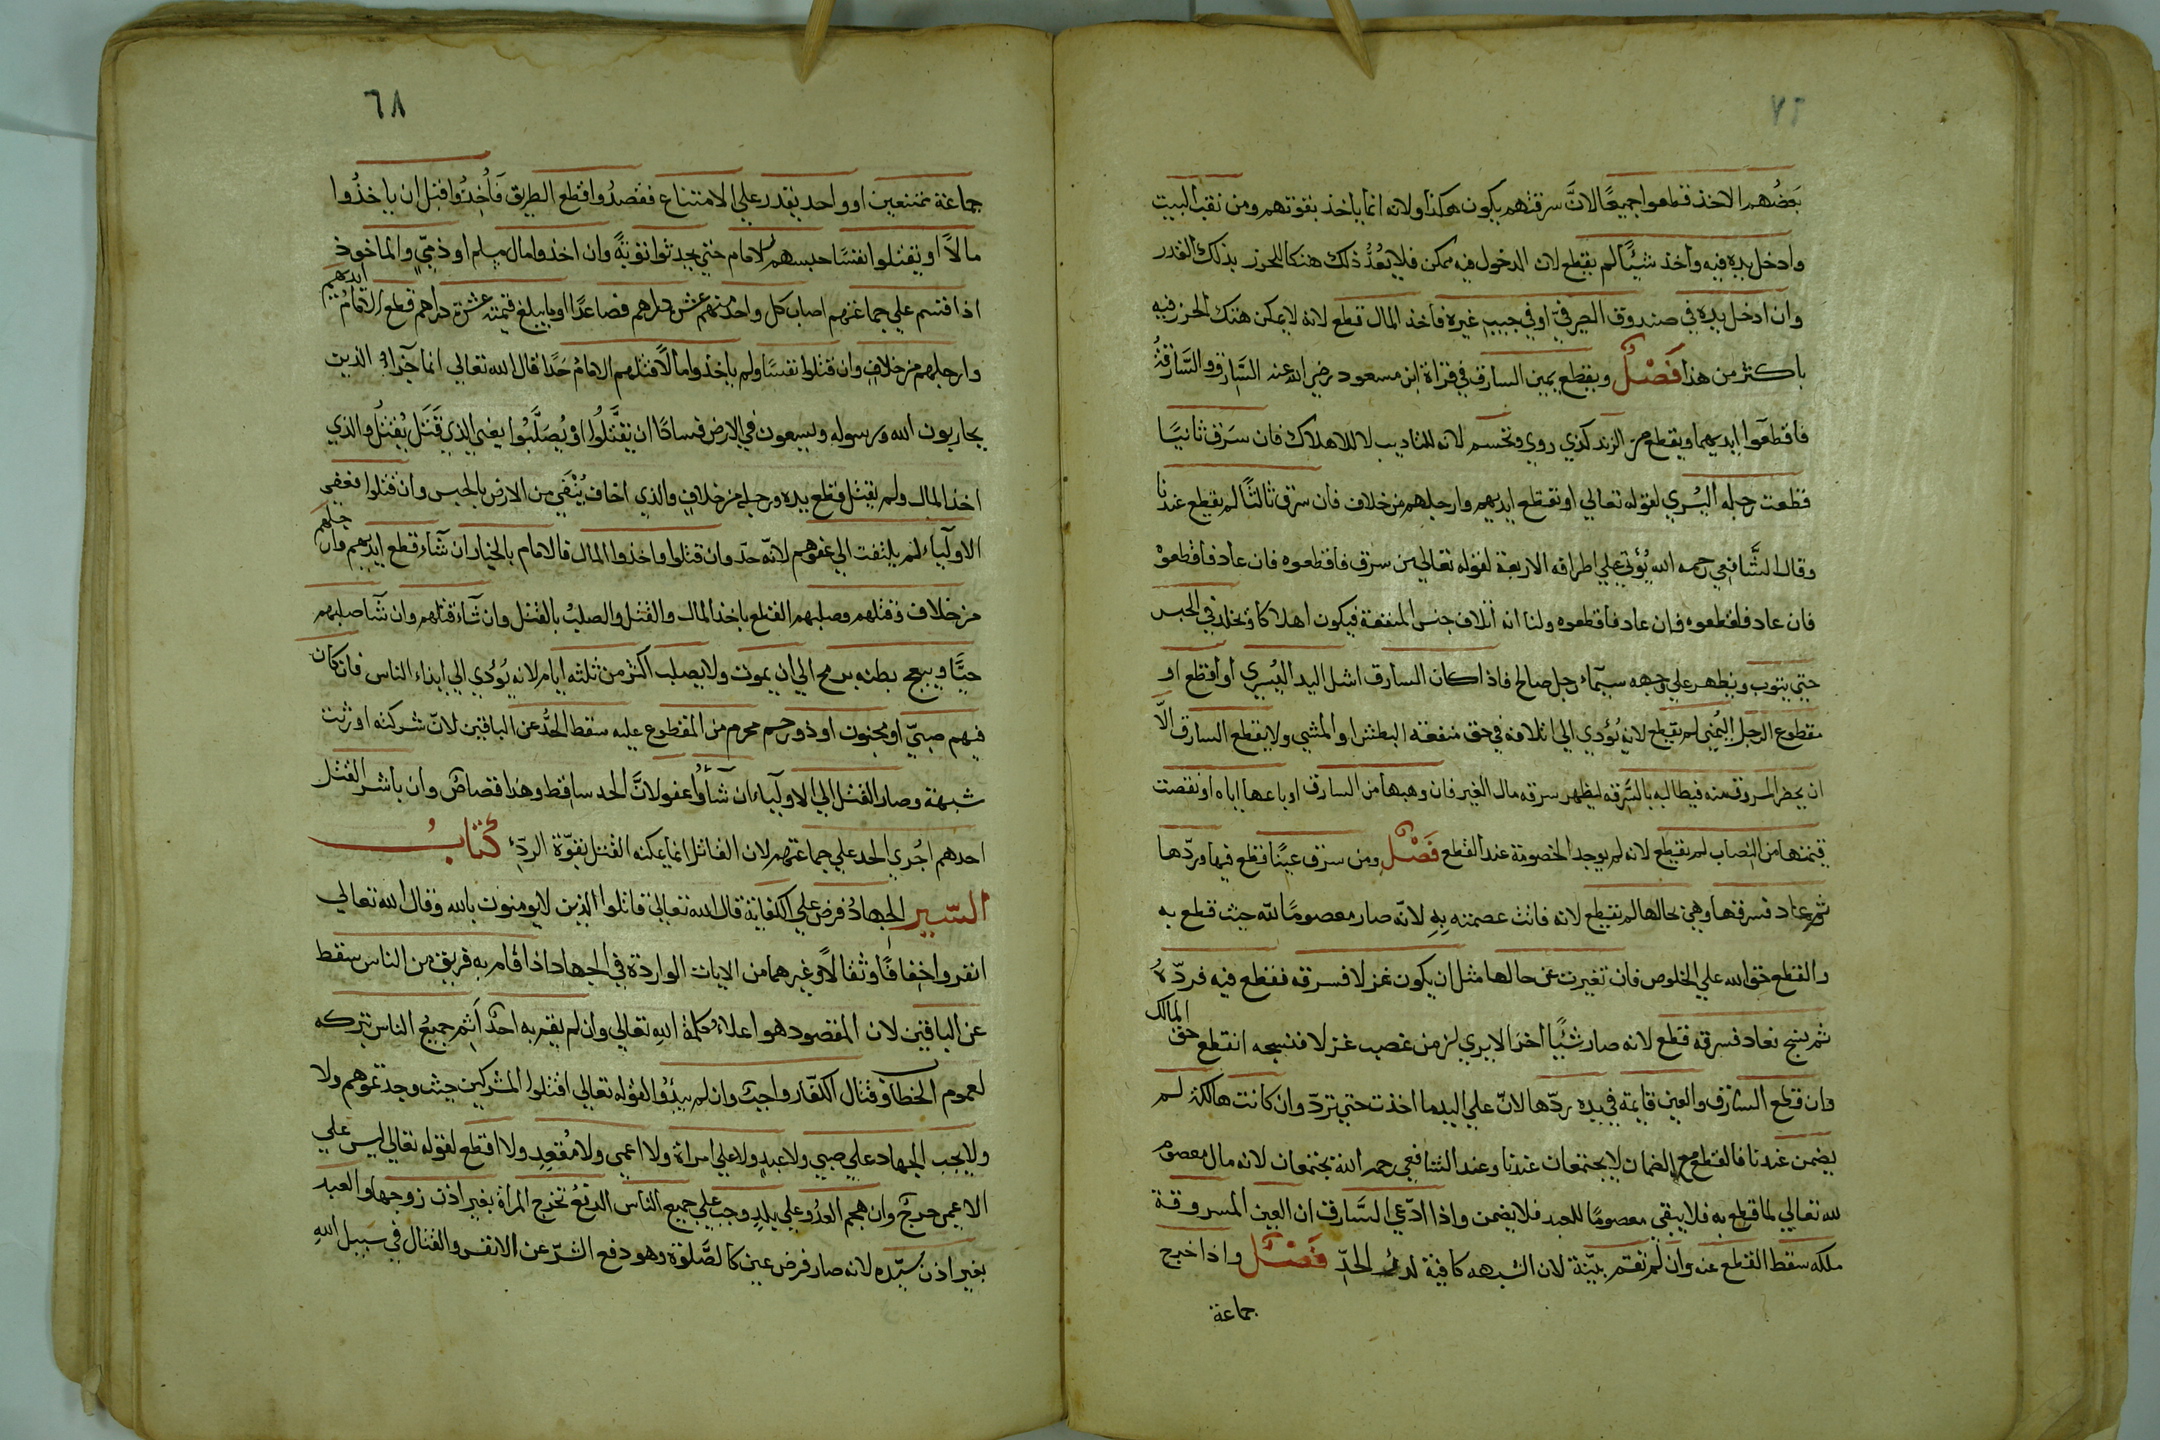 ٧٢
بَعضُهم الاخذ قطعوا جميعًا لانَّ سرقتهم يكون هكذا ولانه انما ياخذ بقوتهم ومن نقب البيت
وادخل يده فيه واخذ شيئًا لم يقطع لان الدخول فيه ممكن فلا يعُدُّ ذلك هتكا للحرز بذلك القدر
وان ادخل يده في صندوق الصيرفيّ او في جيب غيره فاخذ المال قطع لانه لا يمكن هتك الحرز فيه
باكثر من هذا فَصْلٌ ويقطع يمين السارق في قراة ابن مسعود رضي الله عنه السَّارق والسَّارقةُ
فاقطعوا ايديهما ويقطع من الزند كذي روي وتحسم لانه للتاديب لا للاهلاك فان سَرَق ثانيًا
قطعت رجله اليُسري لقوله تعالي او تقطع ايديهم وارجلهم من خلاف فان سرق ثالثًا لم يقطع عندنا
وقال الشَّافعي رحمه الله يُؤتي علي اطرافه الاربعة لقوله تعالي من سرق فاقطعوه فان عاد فاقطعوهْ
فان عاد فاقطعوه فان عاد فاقطعوه ولنا انه اتلاف جنس المنفعة فيكون اهلاكا ويخلد في الحبس
حتي يتوب ويظهر علي وجهه سيمآء رجل صالح فاذا كان السارق اشل اليد اليُسري او اقطع او
مقطوع الرجل اليُمني لم يقطع لانه يُؤدي الي اتلافه في حق منفعة البطش او المشي ولا يقطع السارق الَّا
ان يحضر المسروق منه فيطالبه بالسَّرقه ليظهر سرقه مال الغير فان وهبها من السارق او باعها اياه او نقصت
قيمتها من النصاب لم يقطع لانه لم يوجد الخصومة عند القطع فَصْلٌ ومن سرق عينًا فقطع فيها وردّها
ثم عاد فسرقها وهي بحالها لم يقطع لانه فاتت عصمته بِهِ لانّه صار معصومًا للّه حيث قطع به
والقطع حق الله علي الخلوص فان تغيرت عن حالها مثل ان يكون غزلا فسرقه فقطع فيه فردّهُ
ثم نسج فعاد فسرقه قطع لانه صار شيًا اخرَ الا يري لو من غصب غزلا فنسجه انقطع حق المالك
وان قطع السارق والعين قايمة في يده ردّها لانّ علي اليد ما اخذت حتي تردّ وان كانت هالكة لم
يضمن عندنا فالقطع مع الضمان لا يجتمعان عندنا وعند الشافعي رحمه الله يجتمعان لانه مال معصوم
لله تعالي لما قطع به فلا يبقي معصومًا للعبد فلا يضمن واذا ادّعي السَّارق ان العين المسروقة
ملكه سقط القطع عنه وان لم تقم بيّنة لان الشبهه كافية لدرئ الحدّ فَصْلٌ واذا خرج
جماعة
٦٨
جماعة ممتنعين او واحد يقدر علي الامتناع فقصدُوا قطع الطريق فَأُخِذُوا قبل ان ياخذُوا
مالاً او يقتلوا نفسًا حبسهم الامام حتي يحدثوا توبةً وان اخذوا مال مسلم او ذمّيّ والماخوذ
اذا قسم علي جماعتهم اصاب كل واحد منهم عشرة دراهم فصاعدًا او ما يبلغ قيمته عشرة دراهم قطع الامامُ ايديهم
وارجلهم من خلافٍ وان قتلوا نفسًا ولم ياخذوا مالًا قتلهم الامامُ حَدًّا قال الله تعالي انما جزآءُ الذين
يحاربون الله ورسوله ويسعون في الارض فسادًا ان يقتَّلُوا او يُصَلَّبُوا يعني الذي قَتَل يُقتلُ والذي
اخذ المال ولم يقتل قطع يده ورجله من خلافٍ والذي اخاف يُنْفي من الارض بالحبس وان قتلوا فعفي
الاوليآء لم يلتفت الي عفوهم لانّه حدّ وان قتلوا واخذوا المال فالامام بالخيار ان شآء قطع ايديهم وارجلهم
من خلاف وقتلهم وصلبهم القطع باخذ المال والقتل والصلبُ بالقتل وان شآء قتلهم وان شآ صلبهم
حيًّا ويبعج بطنه برمح الي ان يموت ولا يصلب اكثر من ثلثه ايام لانه يُؤدي الي ايذاء الناس فان كان
فيهم صبيّ او مجنون او ذو رحم محرم من المقطوع عليه سقط الحدُّ عن الباقين لانّ شركته اورثت
شبهة وصار القتل الي الاوليآء ان شآؤُا عفو لانَّ الحد ساقط وهذا قصاصٌ وان باشر القتل
احدهم اجُري الحد علي جماعتهم لان القاتل انما يمكنه القتل بقوّة الردّء كتابُ
السّير الجهادُ فرض علي الكفاية قال الله تعالي قاتلوا الذين لا يومنون بالله وقال الله تعالي
انفروا خفافًا وثقالًا وغيرهما من الايات الواردة في الجهاد اذا قام به فريق من الناس سقط
عن الباقين لان المقصود هو اعلاءُ كلمة اللهِ تعالي وان لم يقم به احدٌ اَثِم جميعُ الناس بتركه
لعموم الخطاب وقتال الكفّار واجبٌ وان لم يبدُؤا لقوله تعالي اقتلوا المشركين حيث وجدتموهم ولا
ولا يجب الجهاد علي صبي ولا عبدٍ ولا علي امراة ولا اعمي ولا مُقعدٍ ولا اقطع لقوله تعالي ليس علي
الاعمي حرجٌ وان هجم العدُو علي بلدٍ وجب علي جميع الناس الدفعُ تخرج المراة بغير اذن زوجها والعبد
بغير اذن سيّده لانه صار فرض عين كالصَّلوة وهو دفع الشرّ عن الانفس والقتال في سبيل اللهِ